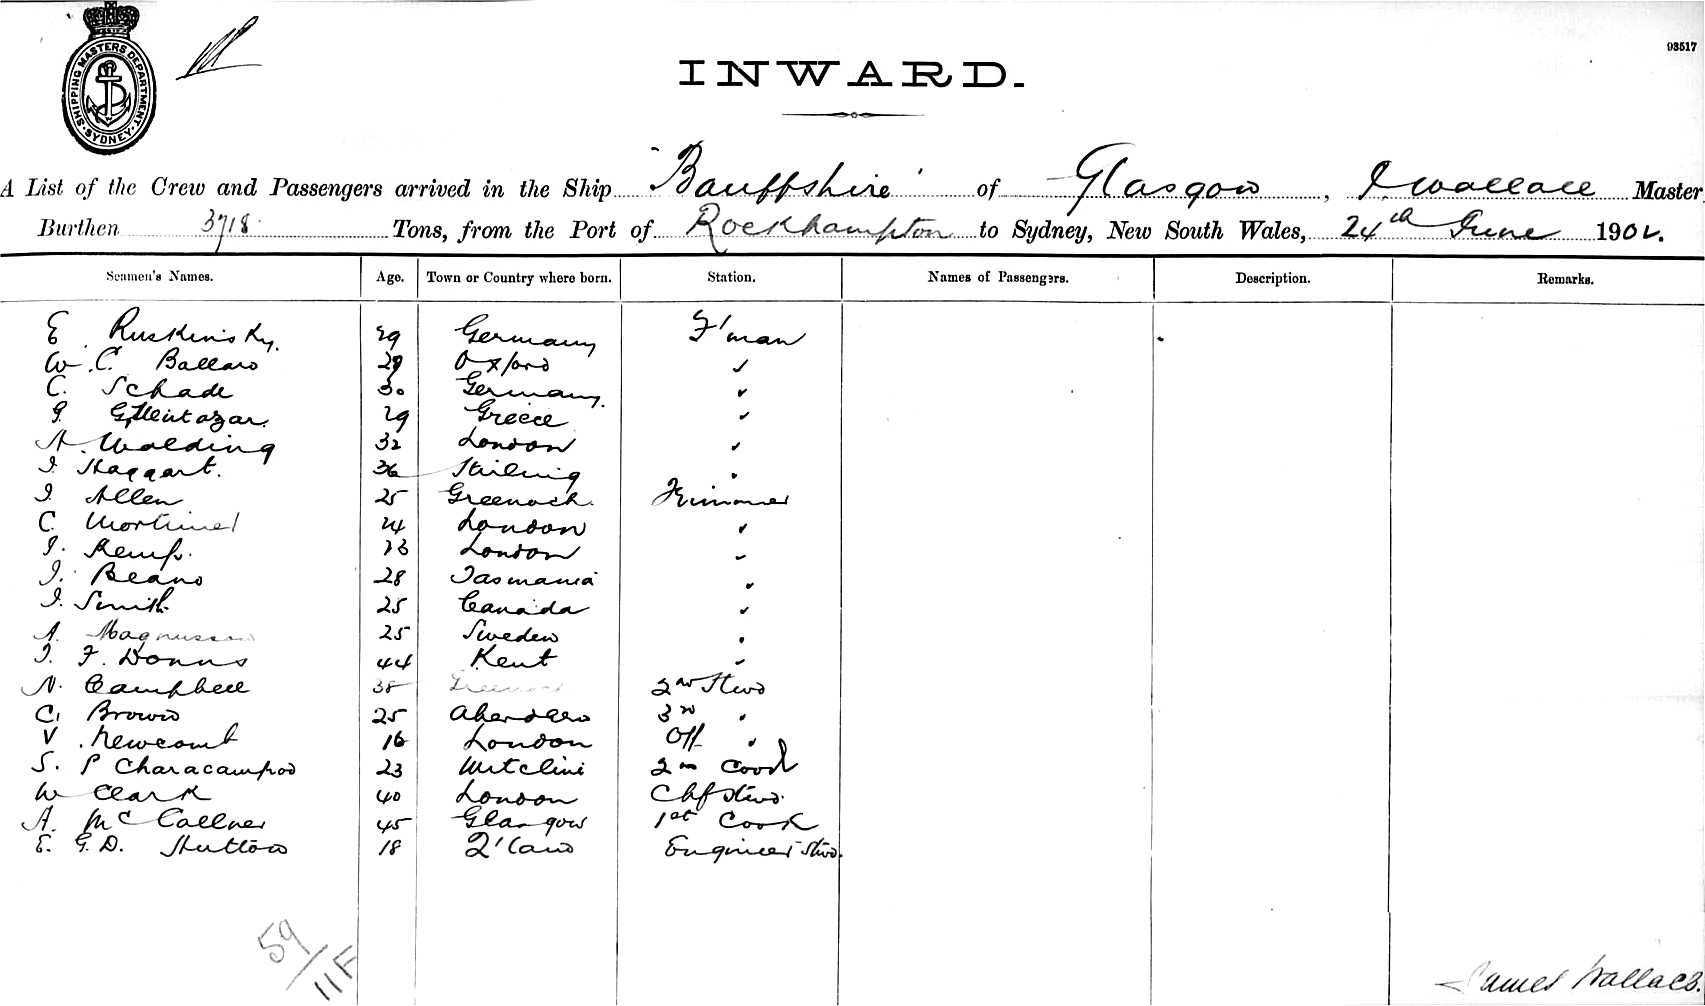 SHIPPING MASTERS DEPARTMENT. SYDNEY.
93517
INWARD.
A List of the Crew and Passengers arrived in the Ship "Banffshire" of Glasgow, J. Wallace Master
Burthen 3718 Tons, from the Port of Rockhampton to Sydney, New South Wales, 24th June 1902.
Seamen's Names. Age. Town or Country where born. Station. Names of Passengers. Description. Remarks.
E. Ruskinsky. 29 Germany F'man
W. C. Ballard 29 Oxford ✓
C. Schade 30 Germany. ✓
G. 29 Greece ✓
A. Walding 32 London ✓
J. Haggart. 36 Stirling "
J. Allen 25 Greenock. Trimmer
C. Mortimer 24 London ✓
J. Kemp. London ✓
J. Beard 28 Tasmania ✓
J. Smith 25 Canada ✓
A. Magnusson 25 Sweden "
J. F. Downs 44 Kent ✓
N. Campbell 38 Greenock 2nd Stwd
C. Brown 25 Aberdeen 3rd "
V. Newcomb 16 London Off "
S. P Characampod 23 Mitclini 2nd Cook
W Clark 40 London Chf Stwd.
A. McCallner 45 Glasgow 1st Cook
E. G. D. Hutton 18 Q'land Engineer Stwd.
59/11F
James Wallace.